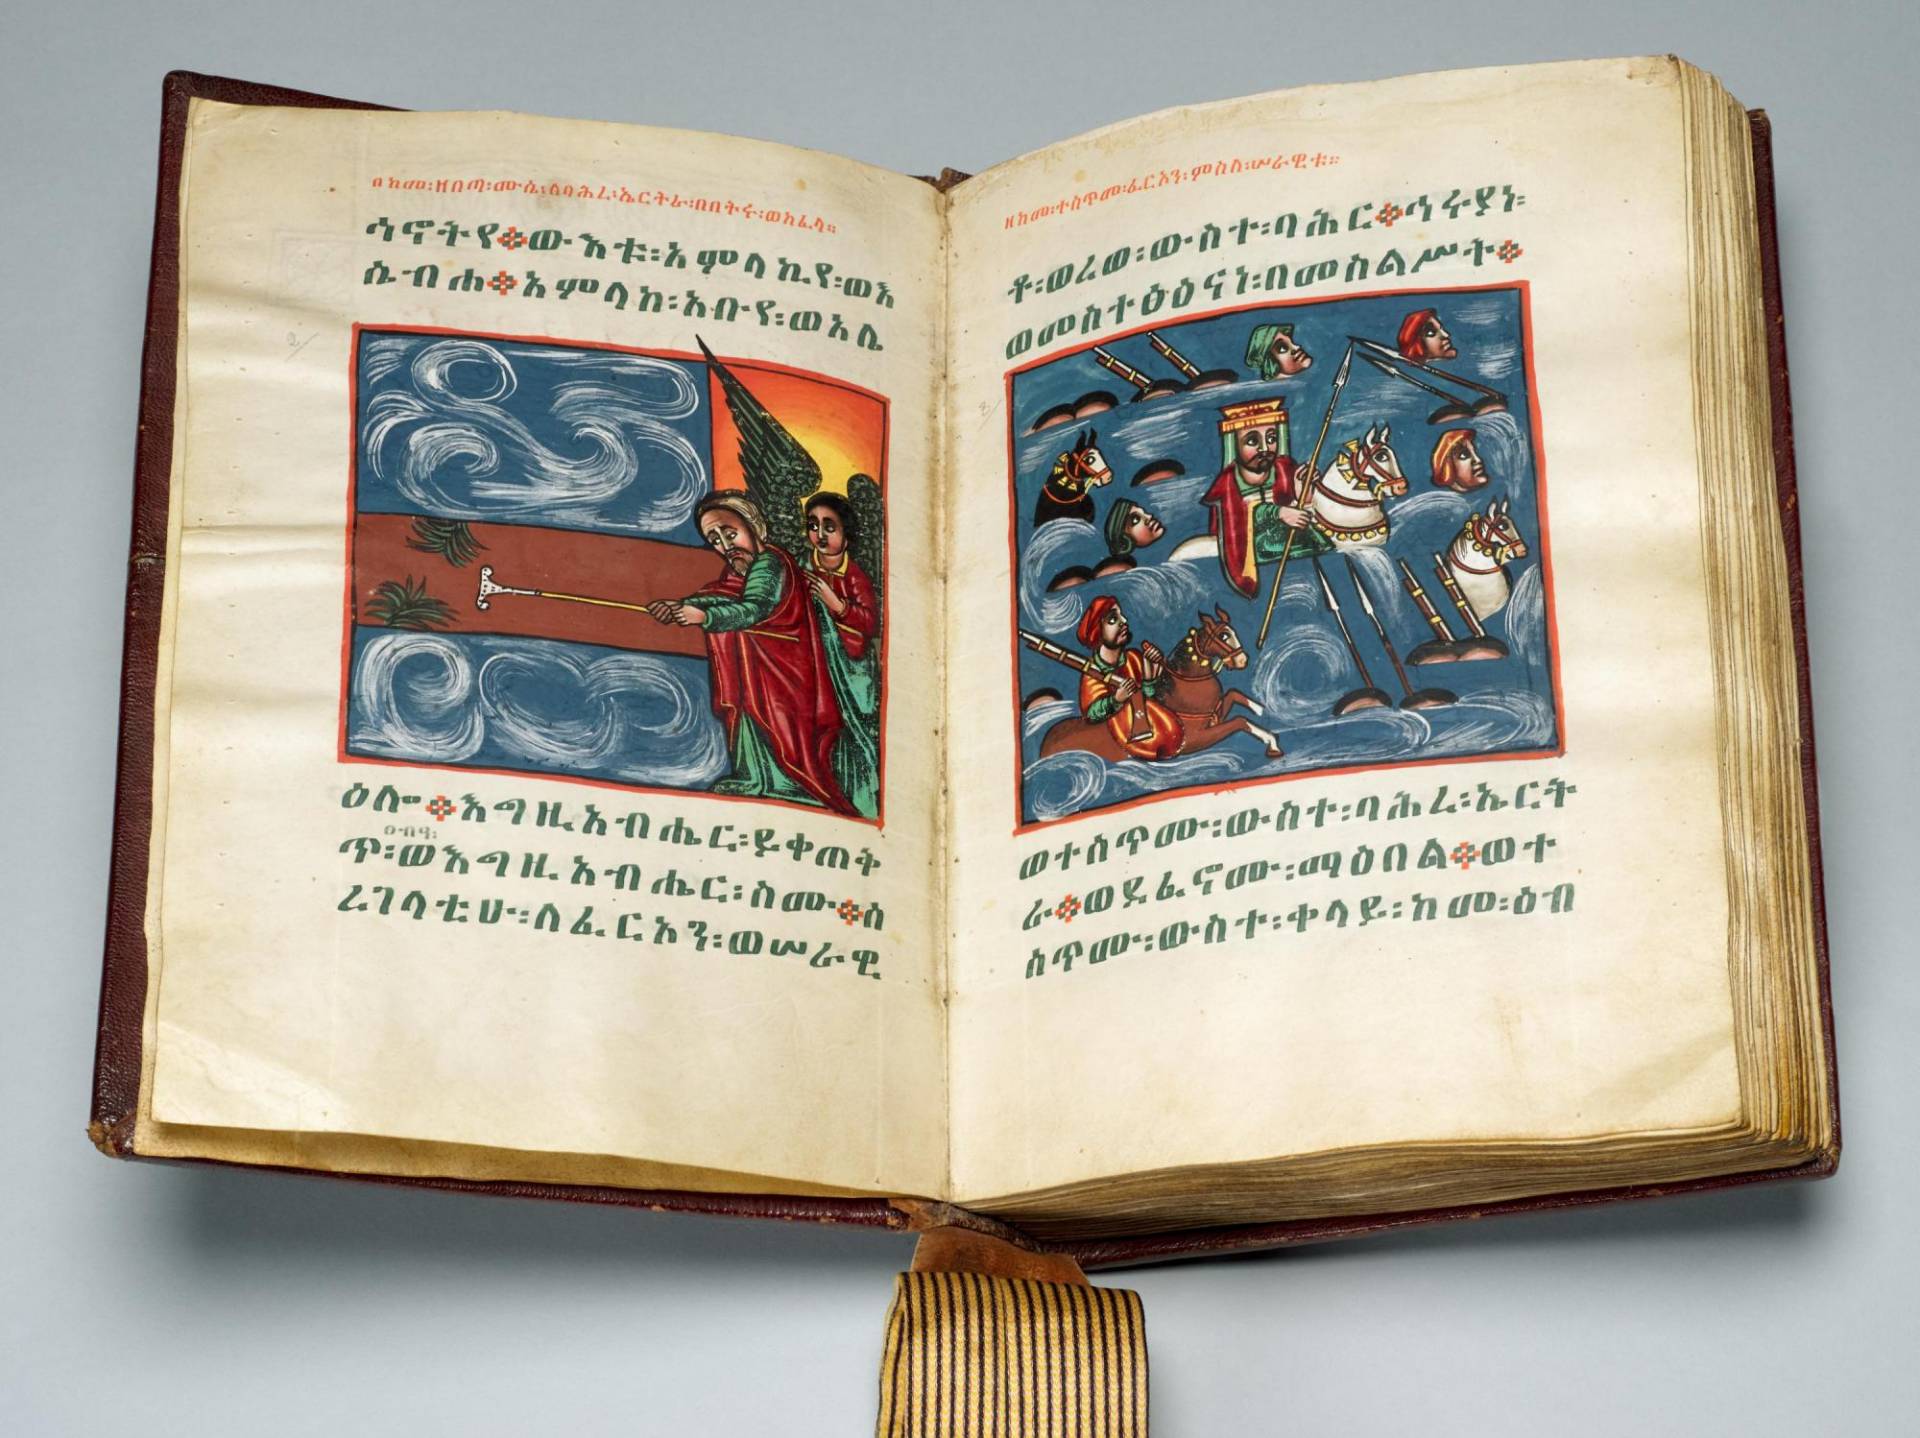 ዘከመ፡ዘበጣ፡ሙሴ፡ለባሕረ፡ኤርትራ፡በበትሩ፡ወከፈላ።
ሓኖትየ፨ውእቱ፡አምላኪየ፡ወእ
ሴብሖ፨አምላከ፡አቡየ፡ወአሌ
ዕሎ፨እግዚአብሔር፡ይቀጠቅ
ጥ፡ወእግዚአብሔር፡ስሙ፨ሰ
ረገላቲሁ፡ለፈርኦን፡ወሠራዊ
ዘከመ፡ተሰጥመ፡ፈርኦን፡ምስለ፡ሠራዊቱ።
ቶ፡ወረወ፡ውስተ፡ባሕር፨ኅሩያነ፡
ወመስተፅዕናነ፡በመስልሥት፨
ወተሰጥሙ፡ውስተ፡ባሕረ፡ኤርት
ራ፨ወደፈኖሙ፡ማዕበል፨ወተ
ሰጥሙ፡ውስተ፡ቀላይ፡ከመ፡ዕብ